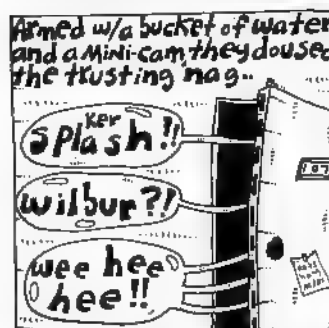 Armed w/a bucket of water
and a Mini-cam, they doused
the trusting nag..
Ker
SPlash!!
wilbur?!
wee hee
hee!!
107